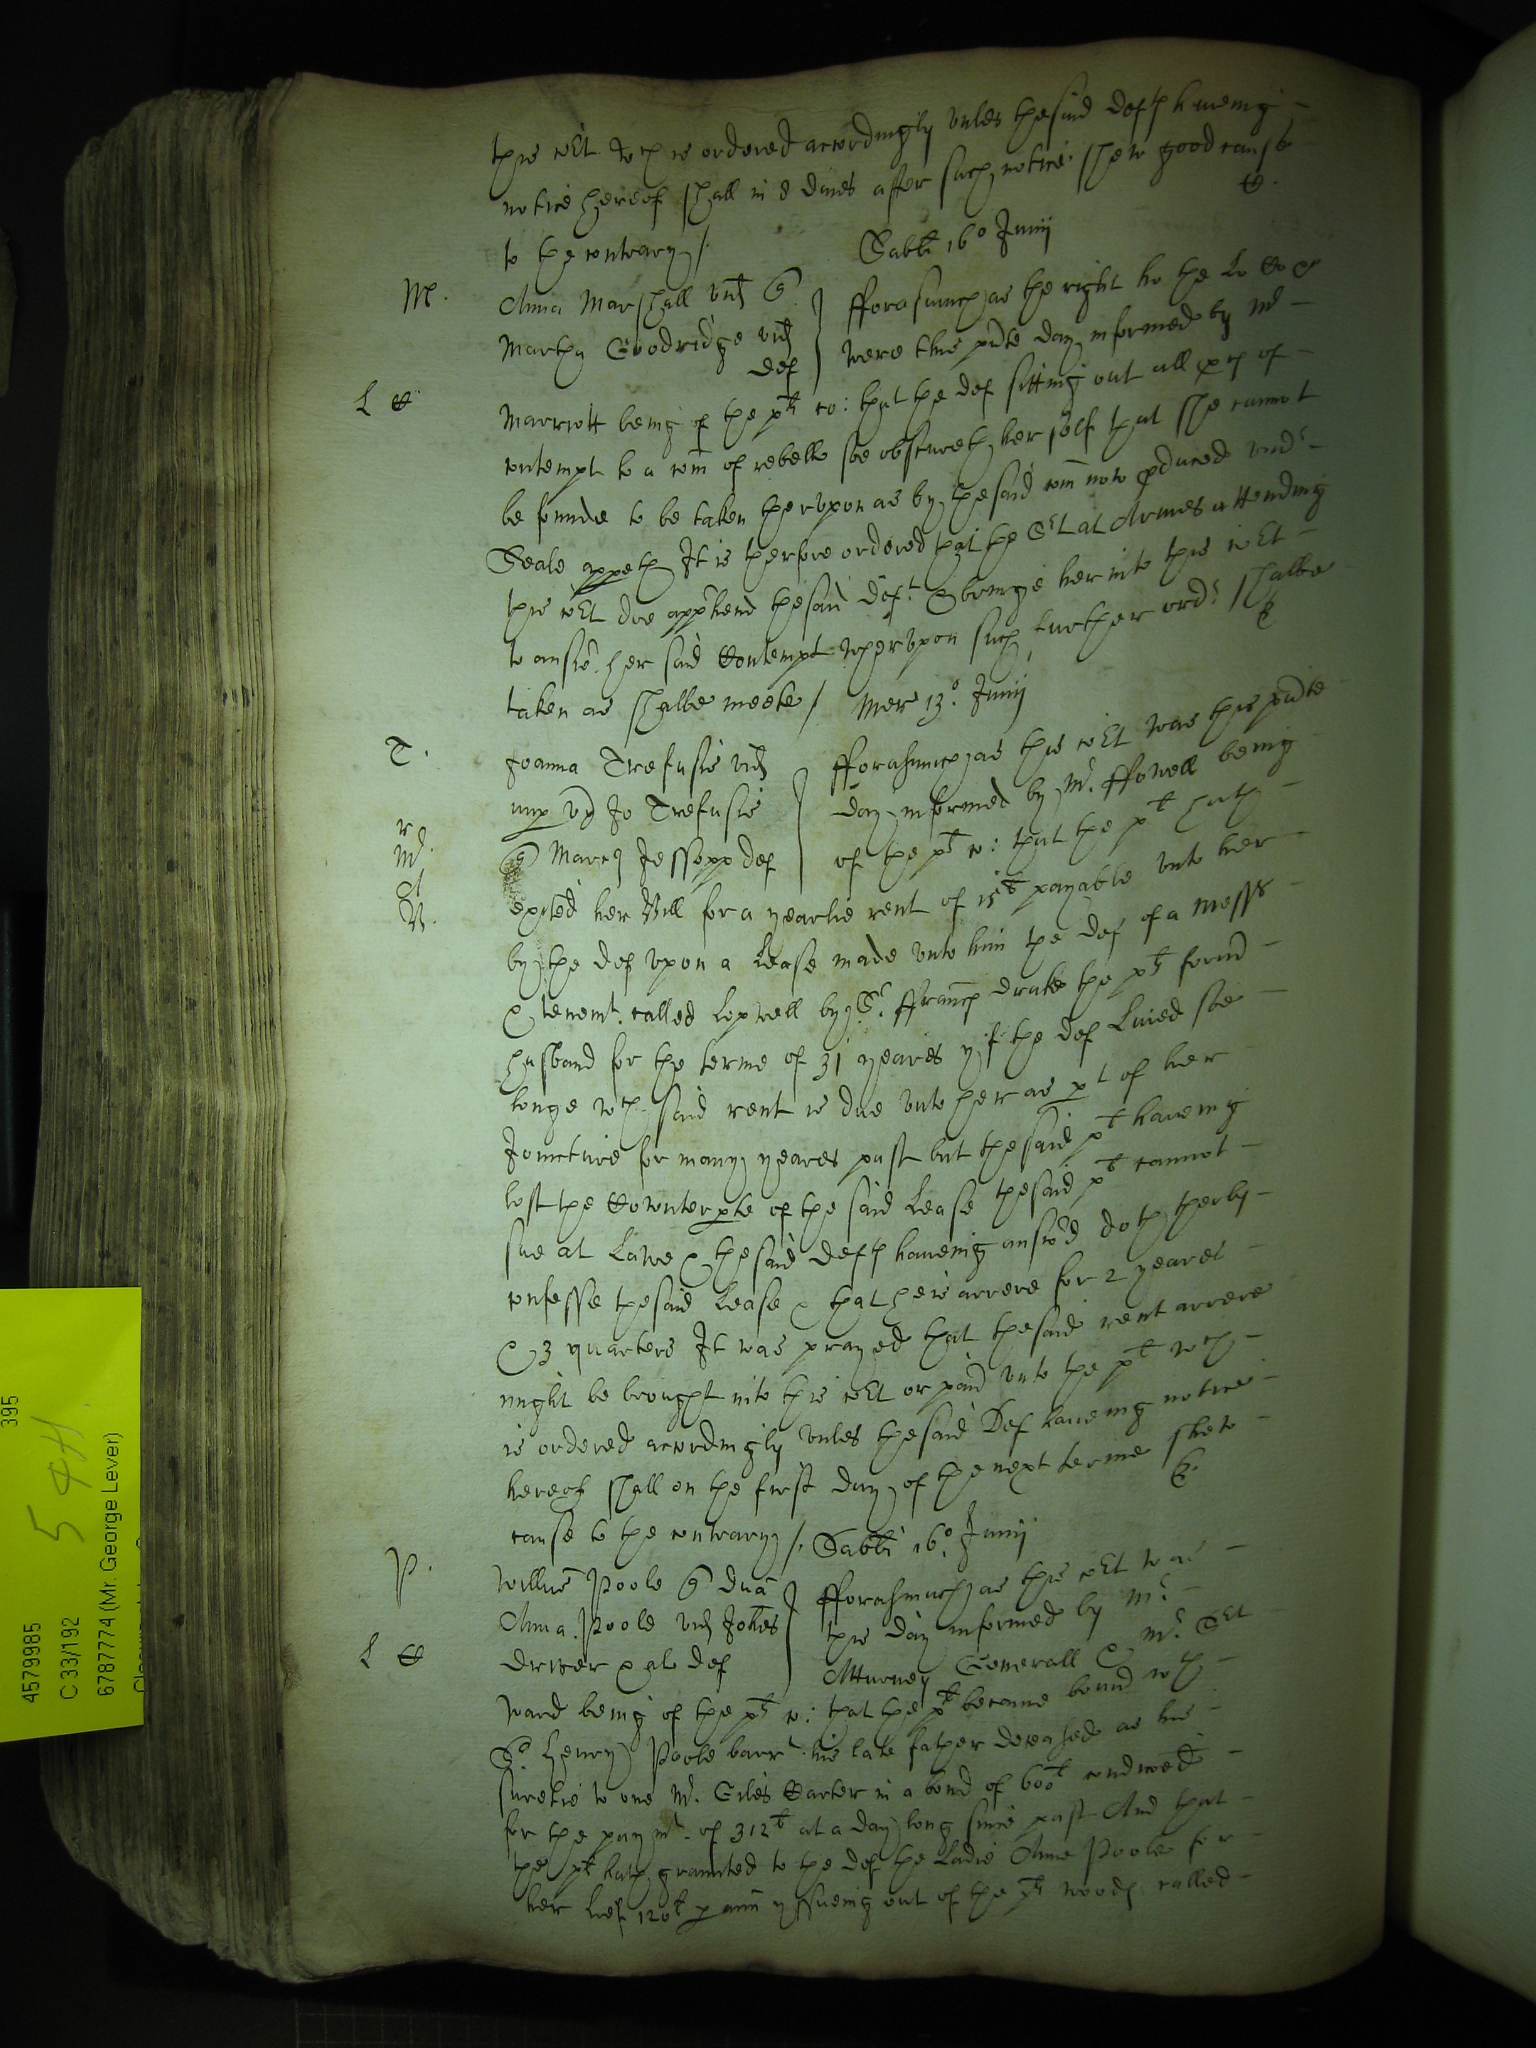 this cort wch is ordered accordingly vnles the said deft haueing
notice hereof shall in 8 daies after such notice shew good cause
to the contrary /.
Sabti 16o Junij
M. Anna Marshall vid
Martha Goodridge vid
def
fforasmuch as the right ho the Lo
were this pnte day informed by Mr
Marriott being of the plts co: that the def sitting out all of
contempt to a com of rebellō soe obscureth her self that she cannot
be founde to be taken thervpon as by the said com now pduced vndr
Seale appeth It is therfore ordered that the Srt at Armes attending
this cort doe apphend the said deft & bringe her into this cort
to answr her said Contempt whervpon such further ordr shalbe
taken as shalbe meete /
Mer 13o Junij
T. Joanna Trefusis vid
nup vx Jo Trefusis
Marcy Jessopp def
fforasmuch as this cort was this pnte
day informed by Mr. ffowell being
of the plts co: that the plt hath
exhited her Bill for a yearlie rent of 15l payable vnto her
by the def vpon a Lease made vnto him the def of a mess
& tenemt. called Lopwell by Sr. ffrancis drake the plts formr
husband for the terme of 31 yeares yf the def Liued soe
longe wch said rent is due vnto her as pt of her
Joincture for many yeares past but the said plt haueing
lost the Counterpte of the said Lease the said plt cannot
sue at Lawe & the said deft haueing answd doth therby
confesse the said Lease & that he is arrere for 2 yeares
& 3 quarters It was prayed that the said rent arrere
might be brought into this cort or paid vnto the plt wch
is ordered accordingly vnles the said Def haueing notice
hereof shall on the first day of the next terme shew
cause to the contrary /.
Sabti 16o. Junij
P. Willus Poole
Anna Poole vid Johes
Driver & al def
fforasmuch as this cort was
this day informed by Mr.
Atturney Generall & Mr. Srt
Ward being of the plts co: that the plt became bound wth
Sr Henry Poole his late father deceased as his
suretie to one Mr. Giles Carter in a bond of 600l condiconed
for the paymt. of 312l at a day long since past And that
the plt hath graunted to the def the Ladie Anne Poole for
her lief 120l p ann yssueing out of the plts woods called
395
5 4H
4579985
C 33/192
6787774 (Mr. George Lever)